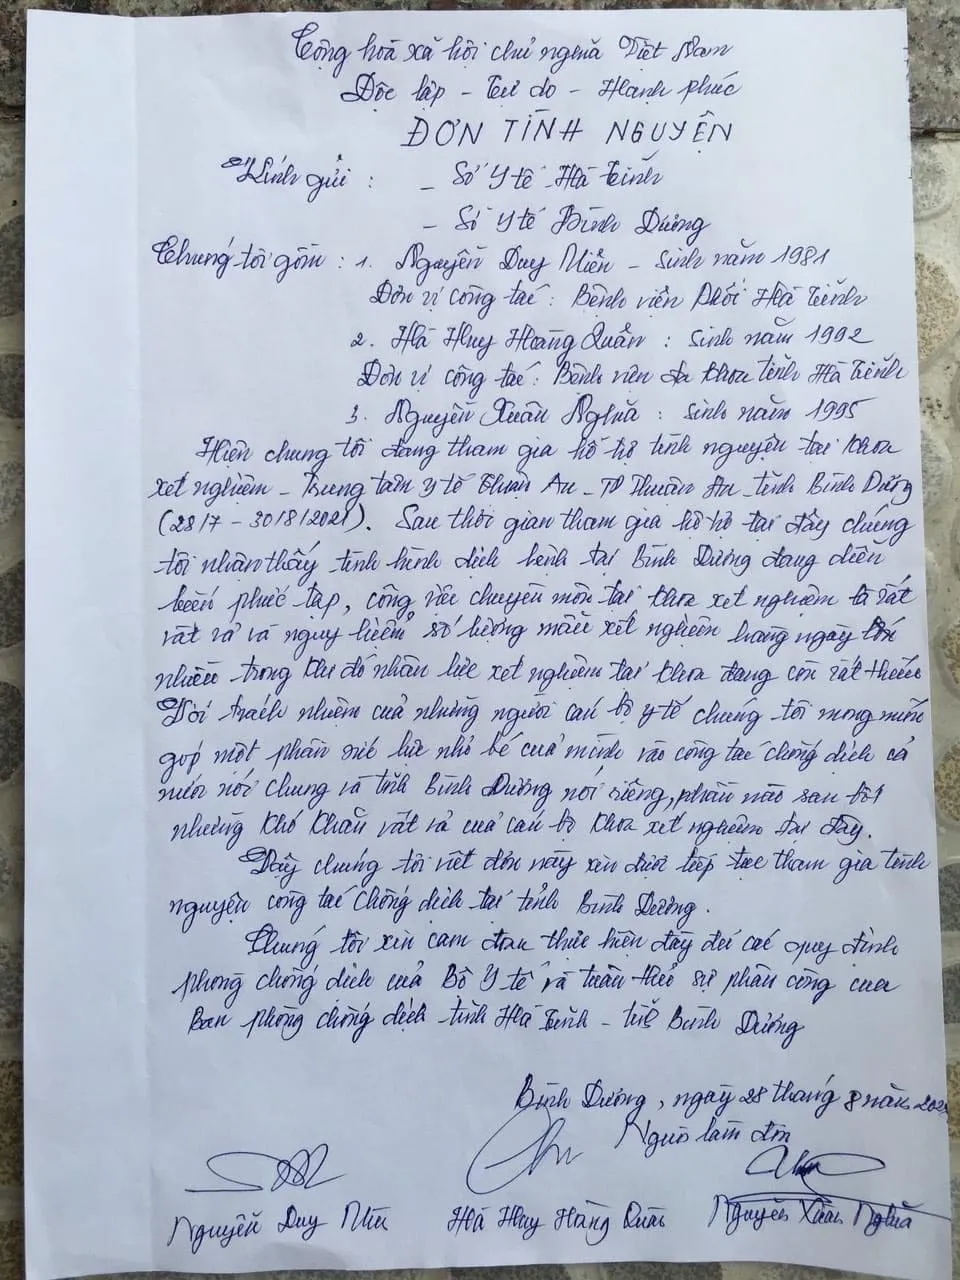 Cộng hoà xã hội chủ nghĩa Việt Nam
Độc lập - Tự do - Hạnh phúc
ĐƠN TÌNH NGUYỆN
Kính gửi : - Sở Y tế Hà Tĩnh
- Sở Y tế Bình Dương
Chúng tôi gồm : 1. Nguyễn Duy Niên - sinh năm 1981
Đơn vị công tác : Bệnh viện Phổi Hà Tĩnh
2. Hà Huy Hoàng Quân : sinh năm 1992
Đơn vị công tác : Bệnh viện đa khoa tỉnh Hà Tĩnh
3. Nguyễn Xuân Nghĩa : sinh năm 1995
Hiện chúng tôi đang tham gia hỗ trợ tình nguyện tại khoa
xét nghiệm - Trung tâm y tế Thuận An - TP Thuận An - tỉnh Bình Dương
(28/7 - 30/8/2021). Sau thời gian tham gia hỗ trợ tại đây chúng
tôi nhận thấy tình hình dịch bệnh tại Bình Dương đang diễn
biến phức tạp, công việc chuyên môn tại khoa xét nghiệm là rất
vất vả và nguy hiểm số lượng mẫu xét nghiệm hàng ngày còn
nhiều trong khi đó nhân lực xét nghiệm tại khoa đang còn rất thiếu
Với trách nhiệm của những người cán bộ y tế chúng tôi mong muốn
góp một phần sức lực nhỏ bé của mình vào công tác chống dịch cả
nước nói chung và tỉnh Bình Dương nói riêng, phần nào san bớt
những khó khăn vất vả của cán bộ khoa xét nghiệm tại đây.
Vậy chúng tôi viết đơn này xin được tiếp tục tham gia tình
nguyện công tác chống dịch tại tỉnh Bình Dương.
Chúng tôi xin cam đoan thực hiện đầy đủ các quy định
phòng chống dịch của Bộ Y tế và tuân thủ sự phân công của
Ban phòng chống dịch tỉnh Hà Tĩnh - tỉnh Bình Dương
Bình Dương, ngày 28 tháng 8 năm 2021
Người làm đơn
Nguyễn Duy Niên Hà Huy Hoàng Quân Nguyễn Xuân Nghĩa